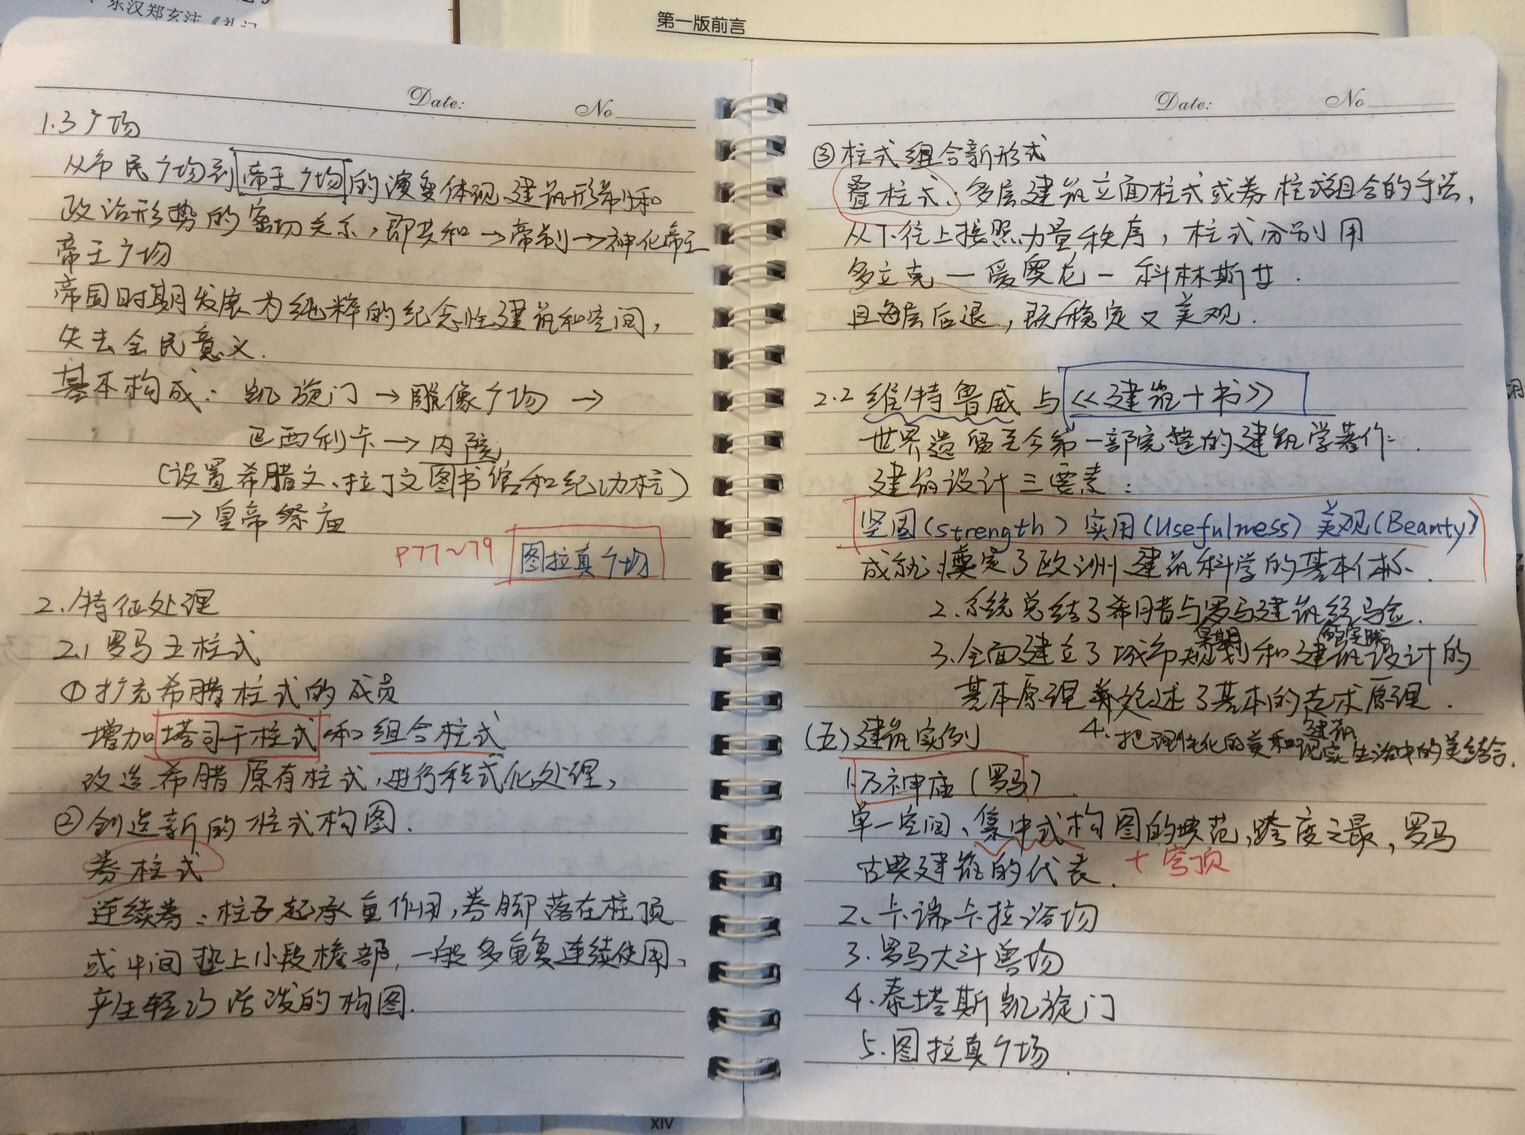 东汉郑玄注《礼记
第一版前言
Date: No
1.3广场
从市民广场到帝王广场的演变体现建筑形制和
政治形势的密切关系，即共和→帝制→神化帝王
帝王广场
帝国时期发展为纯粹的纪念性建筑和空间，
失去全民意义.
基本构成: 凯旋门→雕像广场→
巴西利卡→内院
(设置希腊文、拉丁文图书馆和纪功柱)
→皇帝祭庙
P77～79 图拉真广场
2.特征处理
2.1 罗马五柱式
①扩充希腊柱式的成员
增加塔司干柱式和组合柱式
改造希腊原有柱式,进行程式化处理,
②创造新的柱式构图.
券柱式
连续券:柱子起承重作用,券脚落在柱顶
或中间垫上小段檐部,一般多重复连续使用、
产生轻巧活泼的构图.
Date: No
③柱式组合新形式
叠柱式:多层建筑立面柱式或券柱式组合的手法,
从下往上按照力量秩序，柱式分别用
多立克－爱奥尼－科林斯式.
且每层后退，既稳定又美观.
2.2 维特鲁威与《建筑十书》
世界遗留至今第一部完整的建筑学著作.
建筑设计三要素:
坚固(strength) 实用(Usefulness) 美观(Beauty)
成就:1奠定了欧洲建筑科学的基本体系.
2.系统总结了希腊与罗马建筑经验.
早期 的实践
3.全面建立了城市规划和建筑设计的
基本原理 并论述了基本的艺术原理.
4.把理性化的美和现实生活中的美结合.
建筑
(五)建筑实例
1.万神庙(罗马)
单一空间、集中式构图的典范,跨度之最,罗马
古典建筑的代表. +穹顶
2.卡瑞卡拉浴场
3.罗马大斗兽场
4.泰塔斯凯旋门
5.图拉真广场
XIV